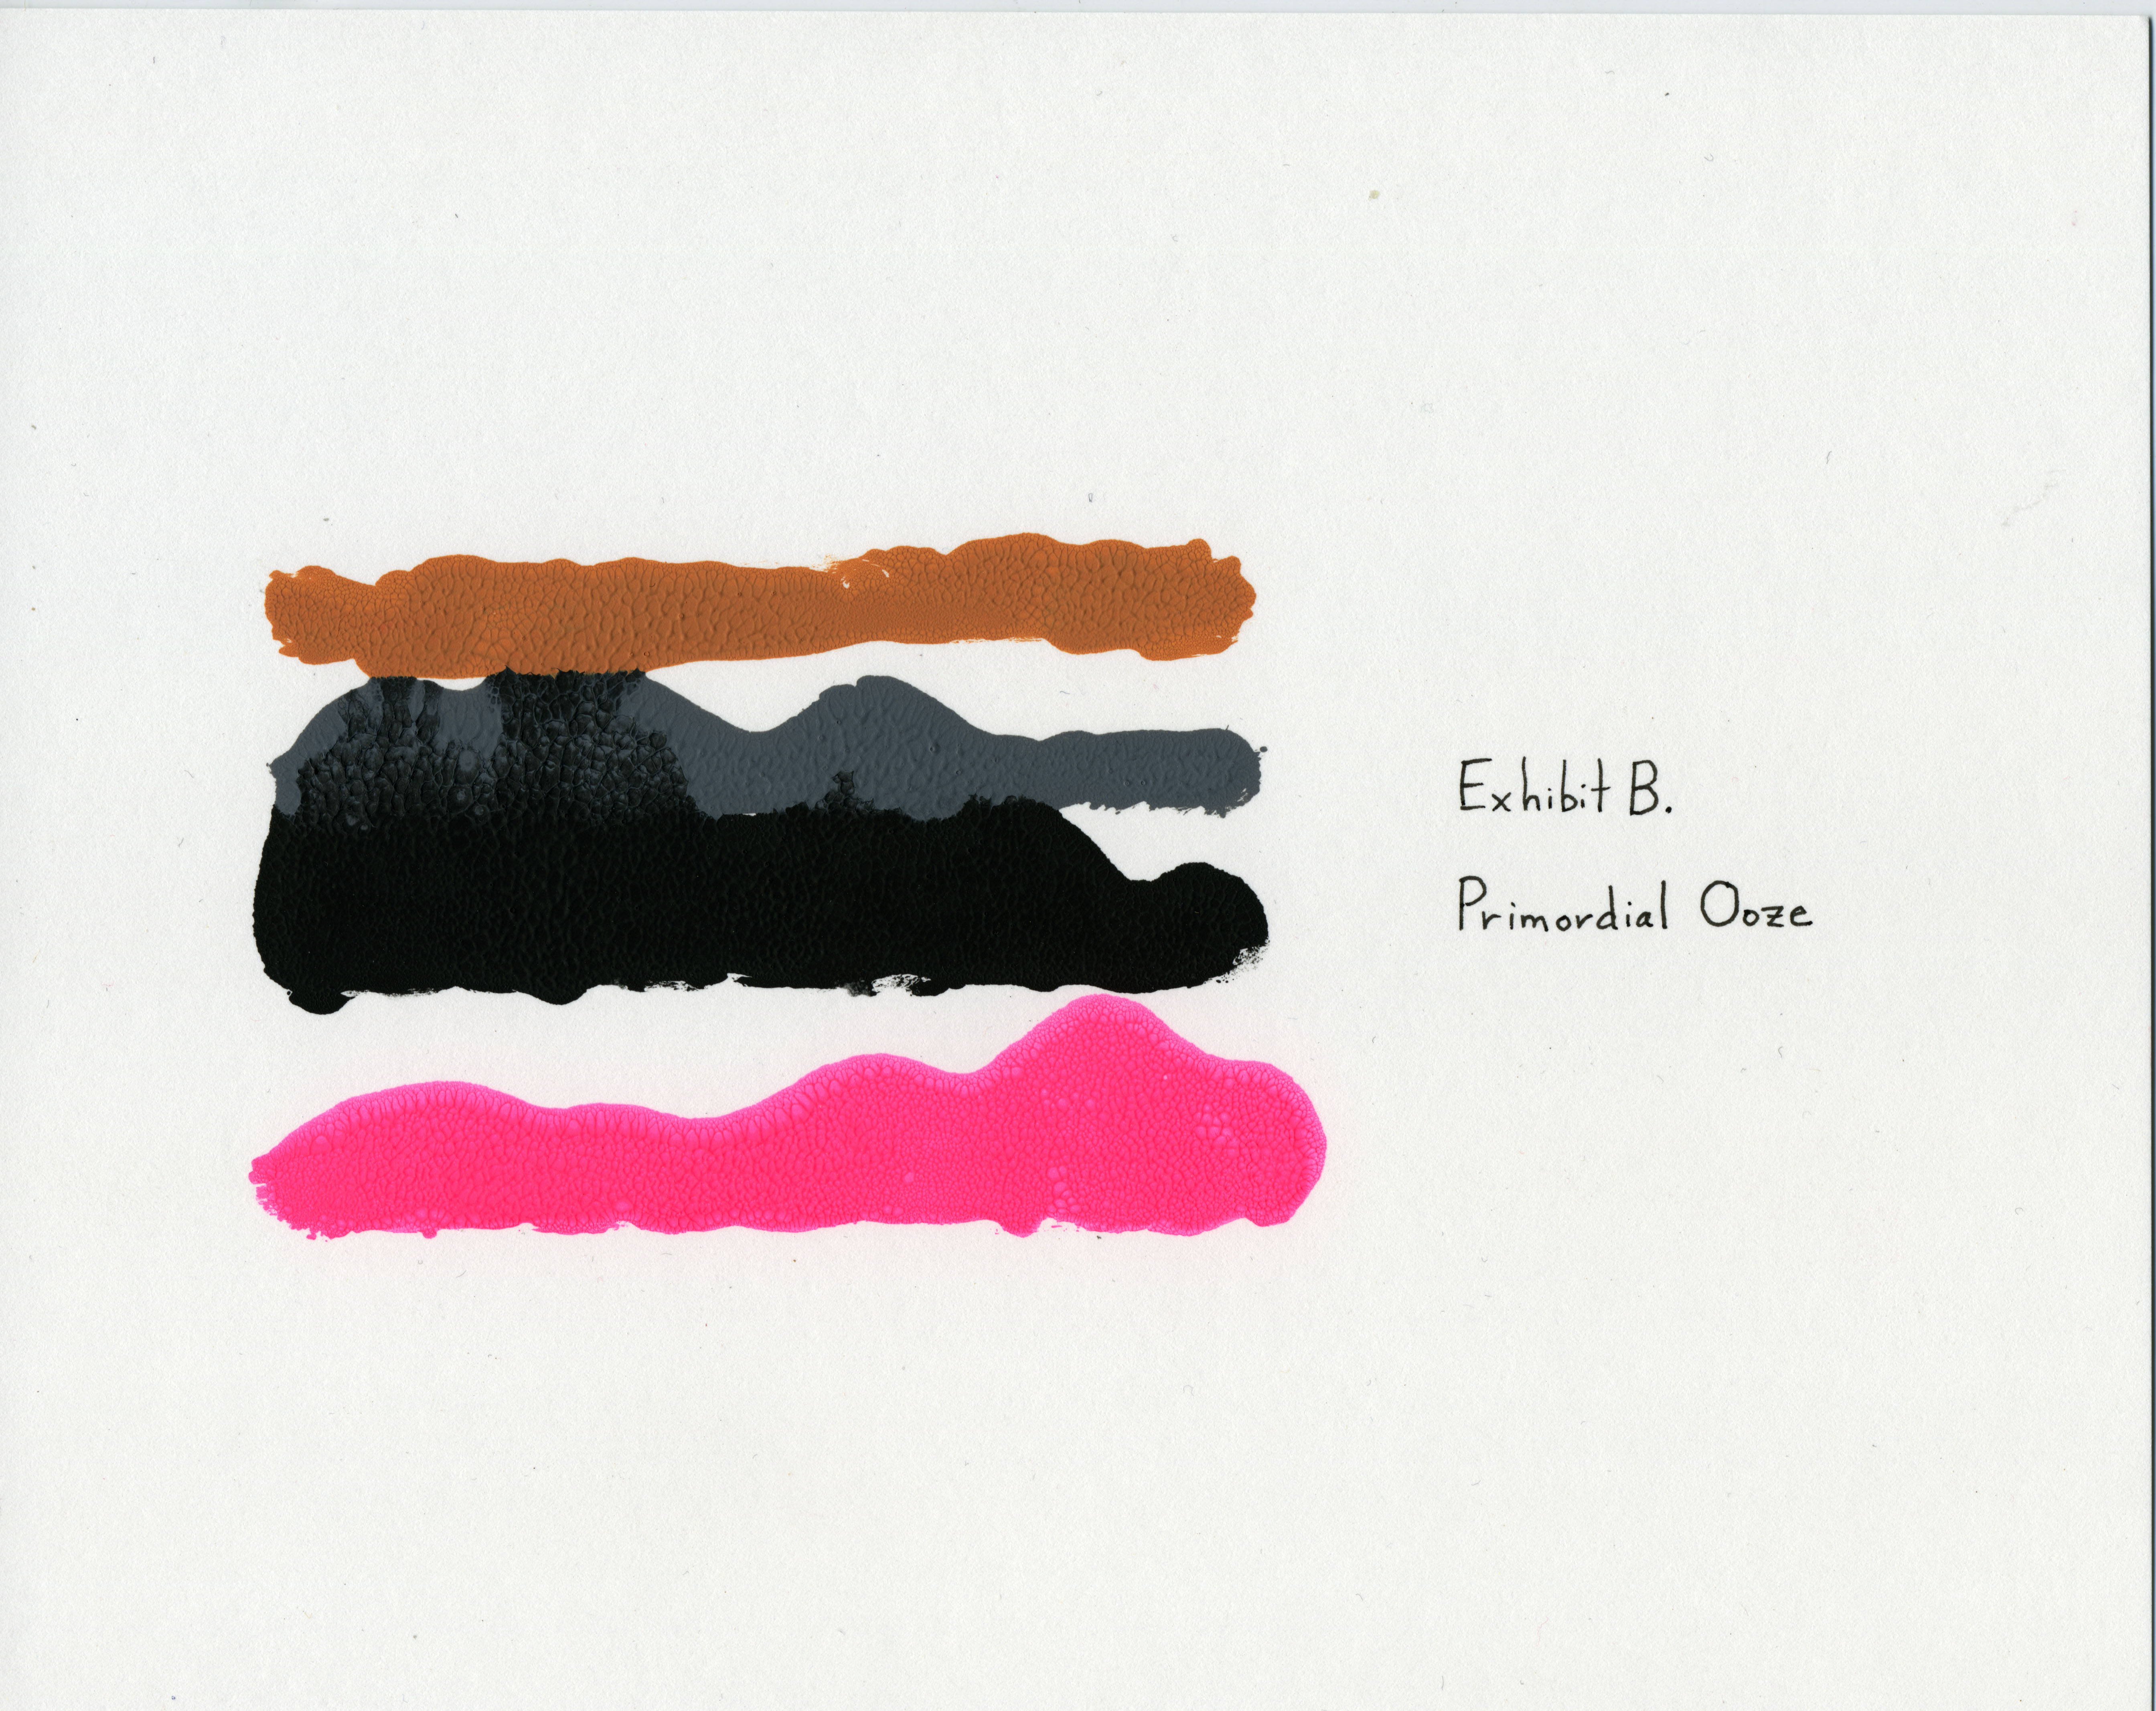 Exhibit B.
Primordial Ooze